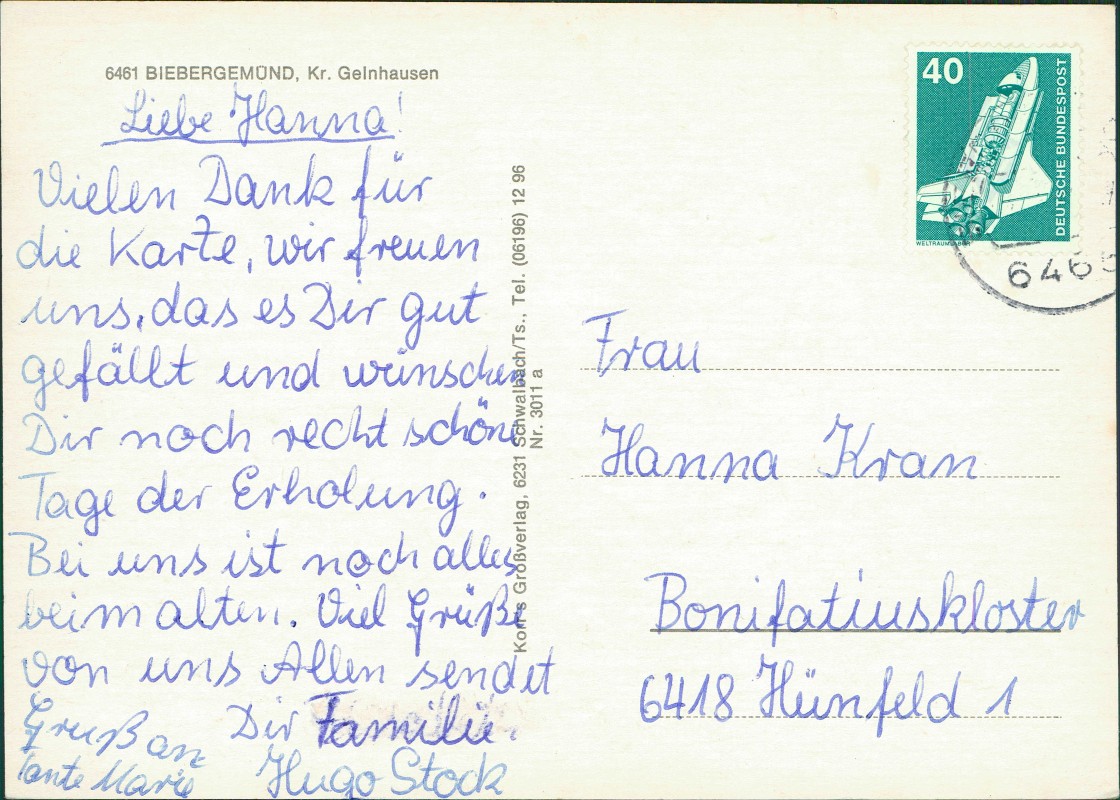 6461 BIEBERGEMÜND, Kr. Gelnhausen
Liebe Hanna!
Vielen Dank für
die Karte, wir freuen
uns, das es Dir gut
gefällt und wünschen
Dir noch recht schöne
Tage der Erholung.
Bei uns ist noch alles
beim alten. Viel Grüße
von uns Allen sendet
Dir Familie
Hugo Stock
Gruß an
tante Marie
Korr's Großverlag, 6231 Schwalbach/Ts., Tel. (06196) 12 96
Nr. 3011 a
40
DEUTSCHE BUNDESPOST
WELTRAUMLABOR
646
Frau
Hanna Kran
Bonifatiuskloster
6418 Hünfeld 1